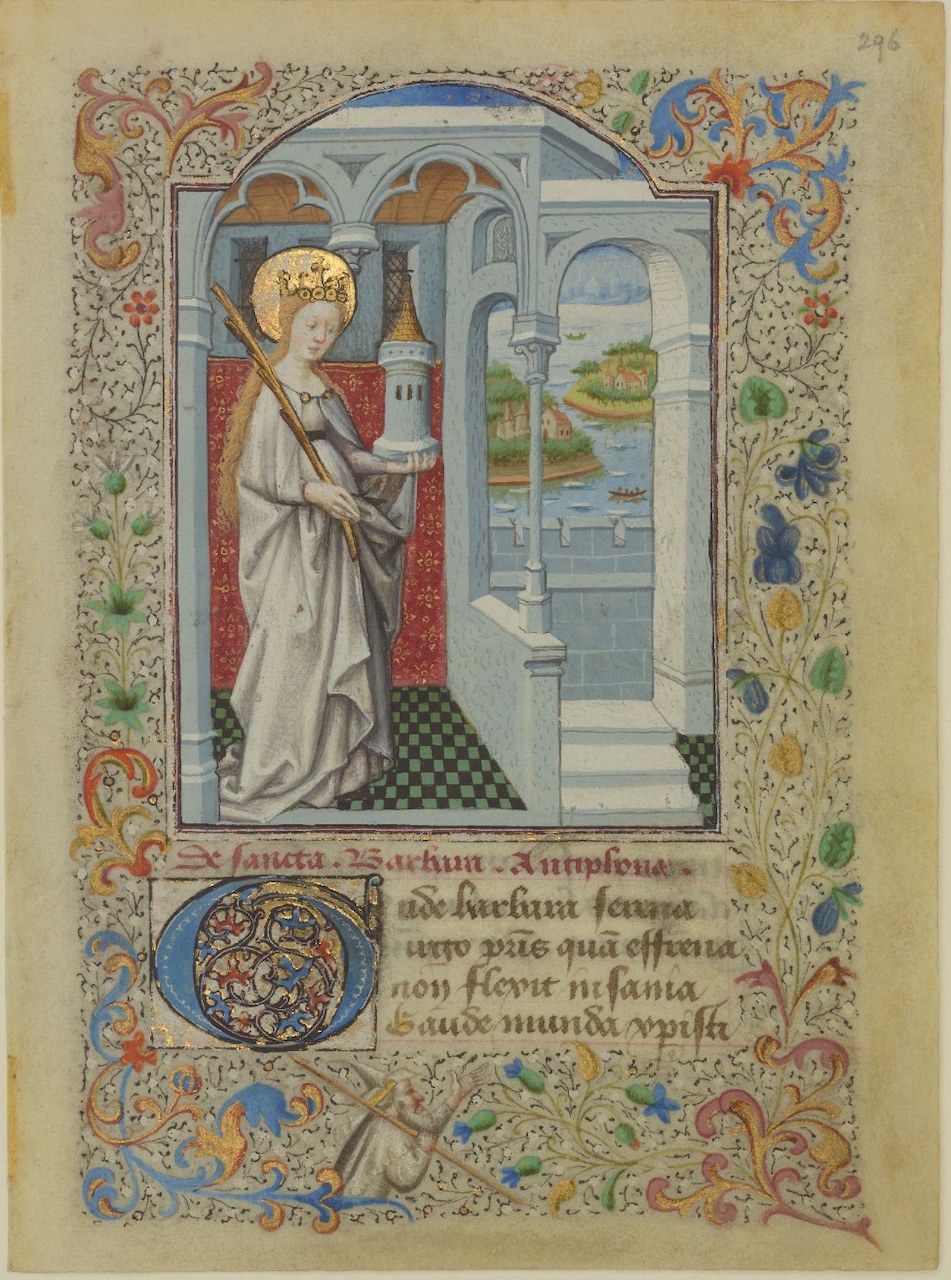 296
De sancta . Barbara . Antiphona .
Gaude barbara serena
uirgo pr̄is quā effrena
non flexit insania
Gaude munda xp̄isti